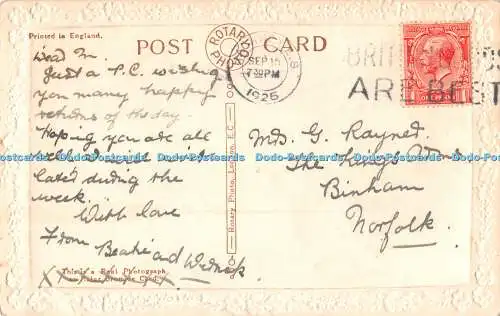 Printed in England.
POST CARD
ROTARY PHOTO
SEP 15
7 30 PM
1925
BRITISH GOODS
ARE BEST
Dear M.
Just a P.C. wishing
you many happy
returns of the day.
Hoping you are all
well
later during the
week.
With love
From Beatie and
Mrs. G. Rayner.
The King's
Binham
Norfolk.
Rotary Photo, London, E.C.
This is a Real Photograph
Dodo-Postcards Dodo-Postcards Dodo-Postcards Dodo-Postcards